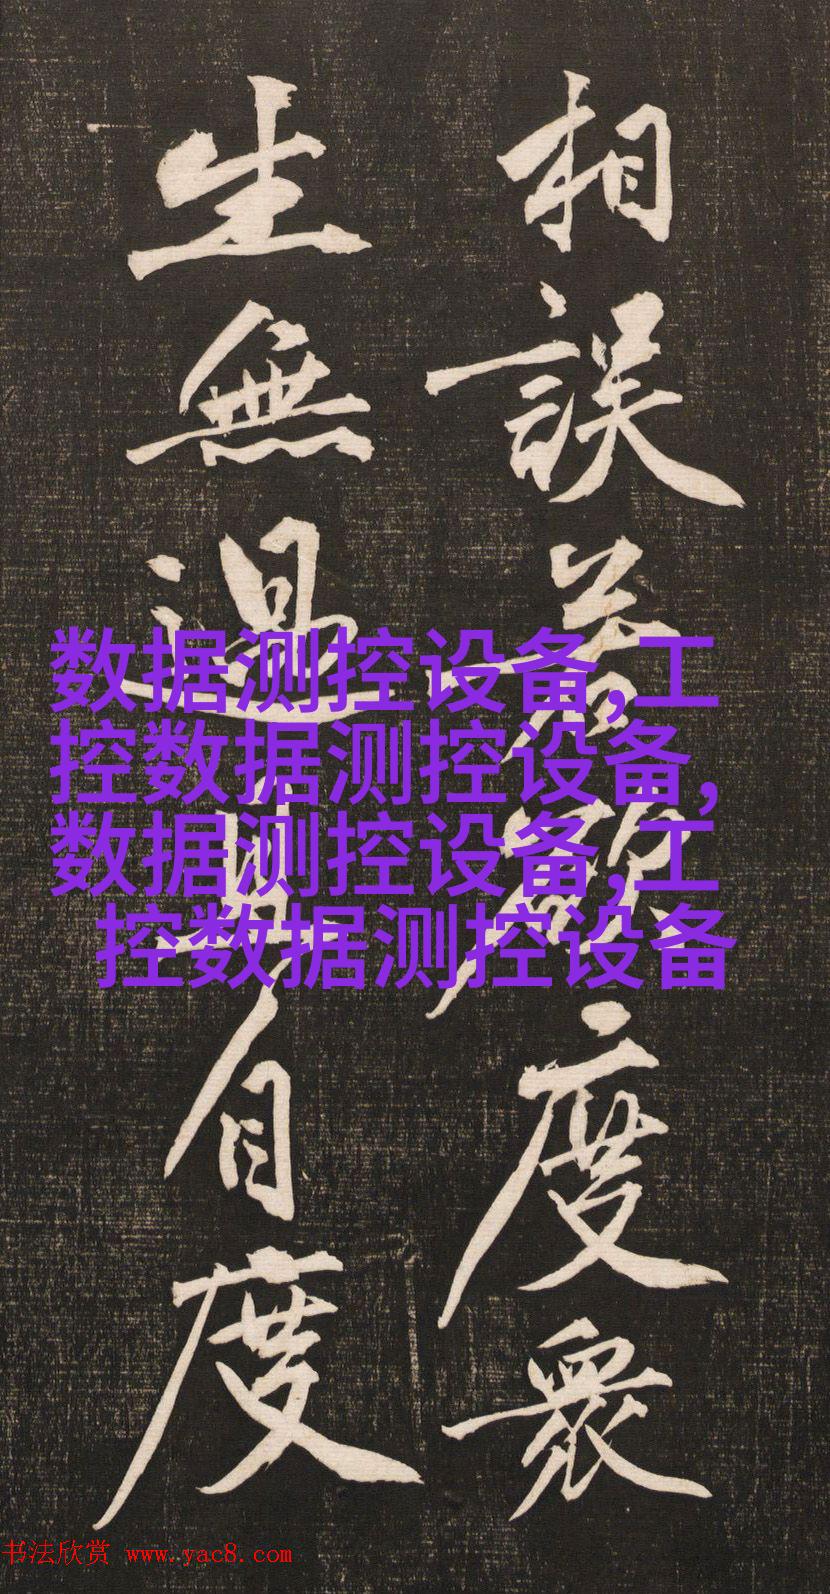 相誤若度衆
生無過自度
数据测控设备,工
控数据测控设备,
数据测控设备,工
控数据测控设备
书法欣赏 www.yac8.com